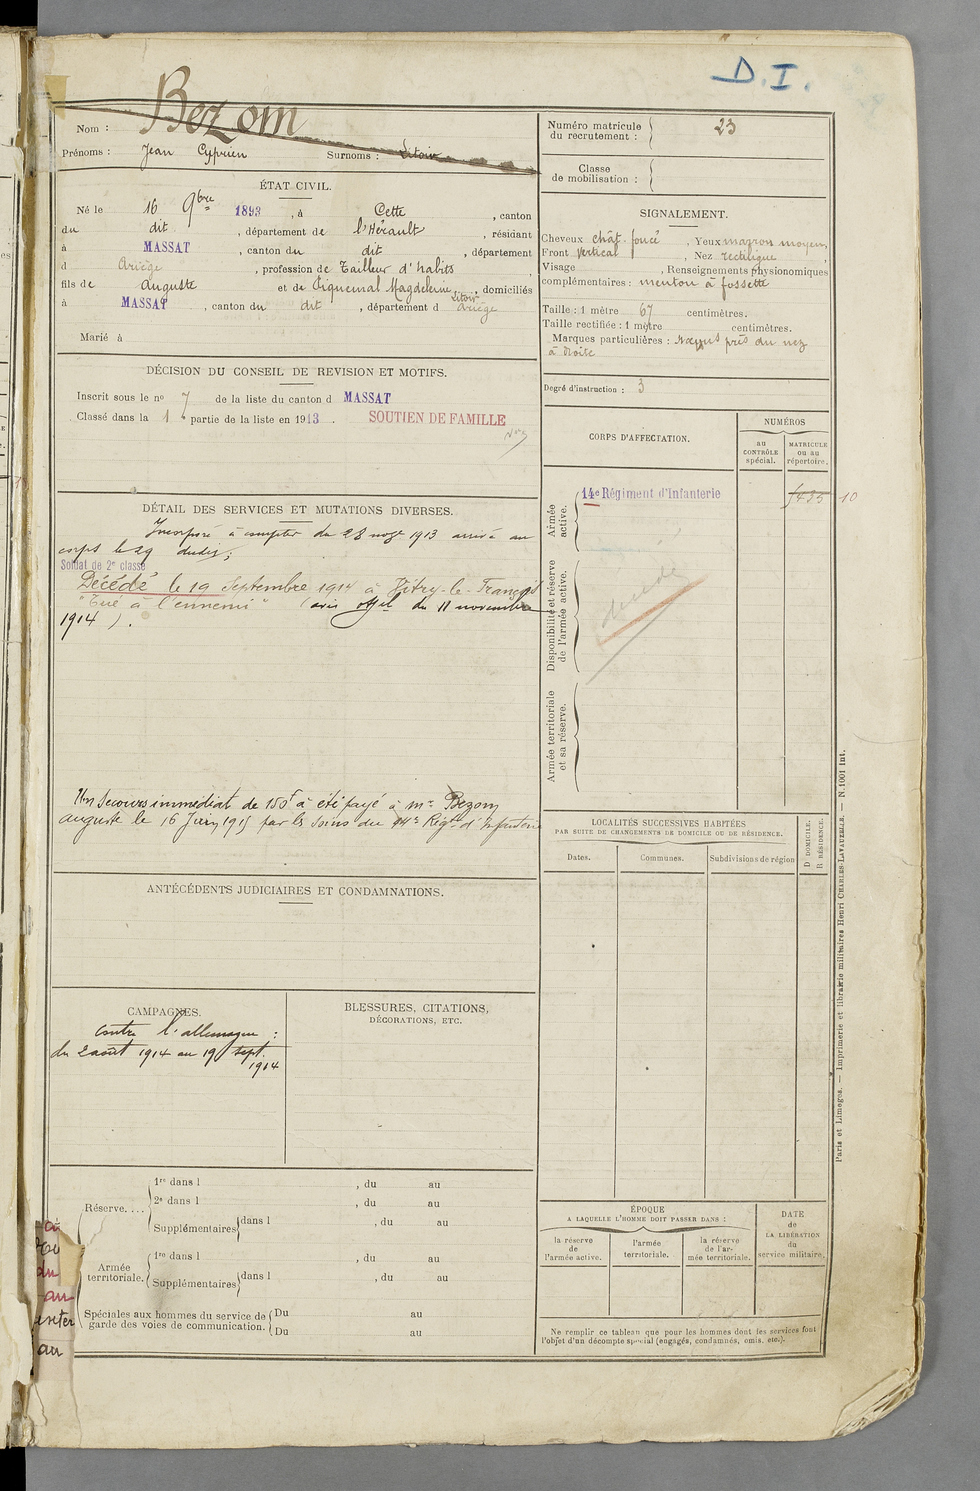 D.I.
Nom : Bezom
Prénoms : Jean Cyprien Surnoms : Litoir
ÉTAT CIVIL.
Né le 16 9bre 1893, à Cette, canton
du dit, département de l'Hérault, résidant
à MASSAT, canton du dit, département
d Ariège, profession de Tailleur d'habits,
fils de Auguste et de Piquemal Magdeleine, domiciliés
Litoir
à MASSAT, canton du dit, département d Ariège
Marié à
DÉCISION DU CONSEIL DE REVISION ET MOTIFS.
Inscrit sous le no 7 de la liste du canton d MASSAT
Classé dans la 1 partie de la liste en 1913. SOUTIEN DE FAMILLE
DÉTAIL DES SERVICES ET MUTATIONS DIVERSES.
Incorporé à compter du 28 nove 1913 arrivé au
corps le 29 dudit;
Soldat de 2e classe
Décédé le 19 Septembre 1914 à Vitry-le-François
"Tué à l'ennemi" (avis offel du 11 novembre
1914).
Un Secours immédiat de 150f a été payé à Mr Bezom
Auguste le 16 Juin 1915 par les soins du 14e Régt d'Infanterie
ANTÉCÉDENTS JUDICIAIRES ET CONDAMNATIONS.
CAMPAGNES.
Contre l'allemagne :
du 2 août 1914 au 19 sept.
1914
BLESSURES, CITATIONS,
DÉCORATIONS, ETC.
Réserve....
1re dans l , du au
2e dans l , du au
Supplémentaires dans l , du au
Armée territoriale.
1re dans l , du au
Supplémentaires dans l , du au
Spéciales aux hommes du service de garde des voies de communication.
Du au
Du au
Numéro matricule du recrutement : 23
Classe de mobilisation :
SIGNALEMENT.
Cheveux chât. foncé, Yeux marron moyen,
Front vertical, Nez rectiligne,
Visage , Renseignements physionomiques
complémentaires : menton à fossette
Taille : 1 mètre 67 centimètres.
Taille rectifiée : 1 mètre centimètres.
Marques particulières : Nævus près du nez
à droite
Degré d'instruction : 3
CORPS D'AFFECTATION.
NUMÉROS
au CONTRÔLE spécial.
MATRICULE ou au répertoire.
Armée active.
14e Régiment d'Infanterie
10
Disponibilité et réserve de l'armée active.
décédé
Armée territoriale et sa réserve.
LOCALITÉS SUCCESSIVES HABITÉES
PAR SUITE DE CHANGEMENTS DE DOMICILE OU DE RÉSIDENCE.
Dates. Communes. Subdivisions de région
D DOMICILE.
R RÉSIDENCE.
ÉPOQUE
A LAQUELLE L'HOMME DOIT PASSER DANS :
la réserve de l'armée active.
l'armée territoriale.
la réserve de l'armée territoriale.
DATE de LA LIBÉRATION du service militaire.
Ne remplir ce tableau que pour les hommes dont les services font
l'objet d'un décompte spécial (engagés, condamnés, omis, etc.).
Paris et Limoges. — Imprimerie et librairie militaires Henri CHARLES-LAVAUZELLE. — N. 1001 int.